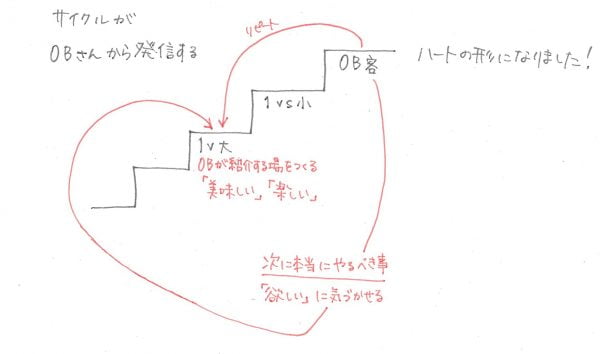 サイクルが
OBさんから発信する
リピート
OB客
ハートの形になりました!
1vs小
1v大
OBが紹介する場をつくる
「美味しい」「楽しい」
次に本当にやるべき事
「欲しい」に気づかせる